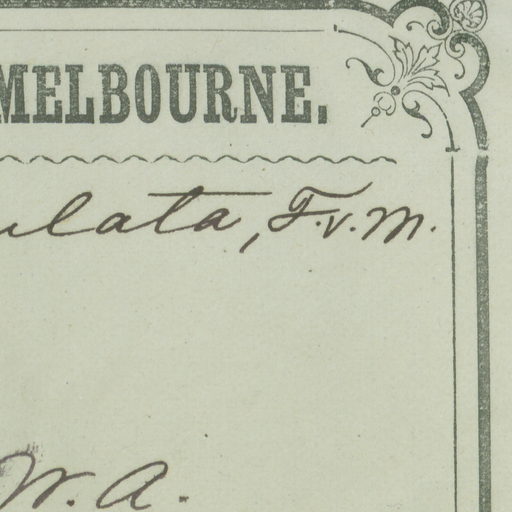 MELBOURNE.
ulata, F.v.M.
W. A.